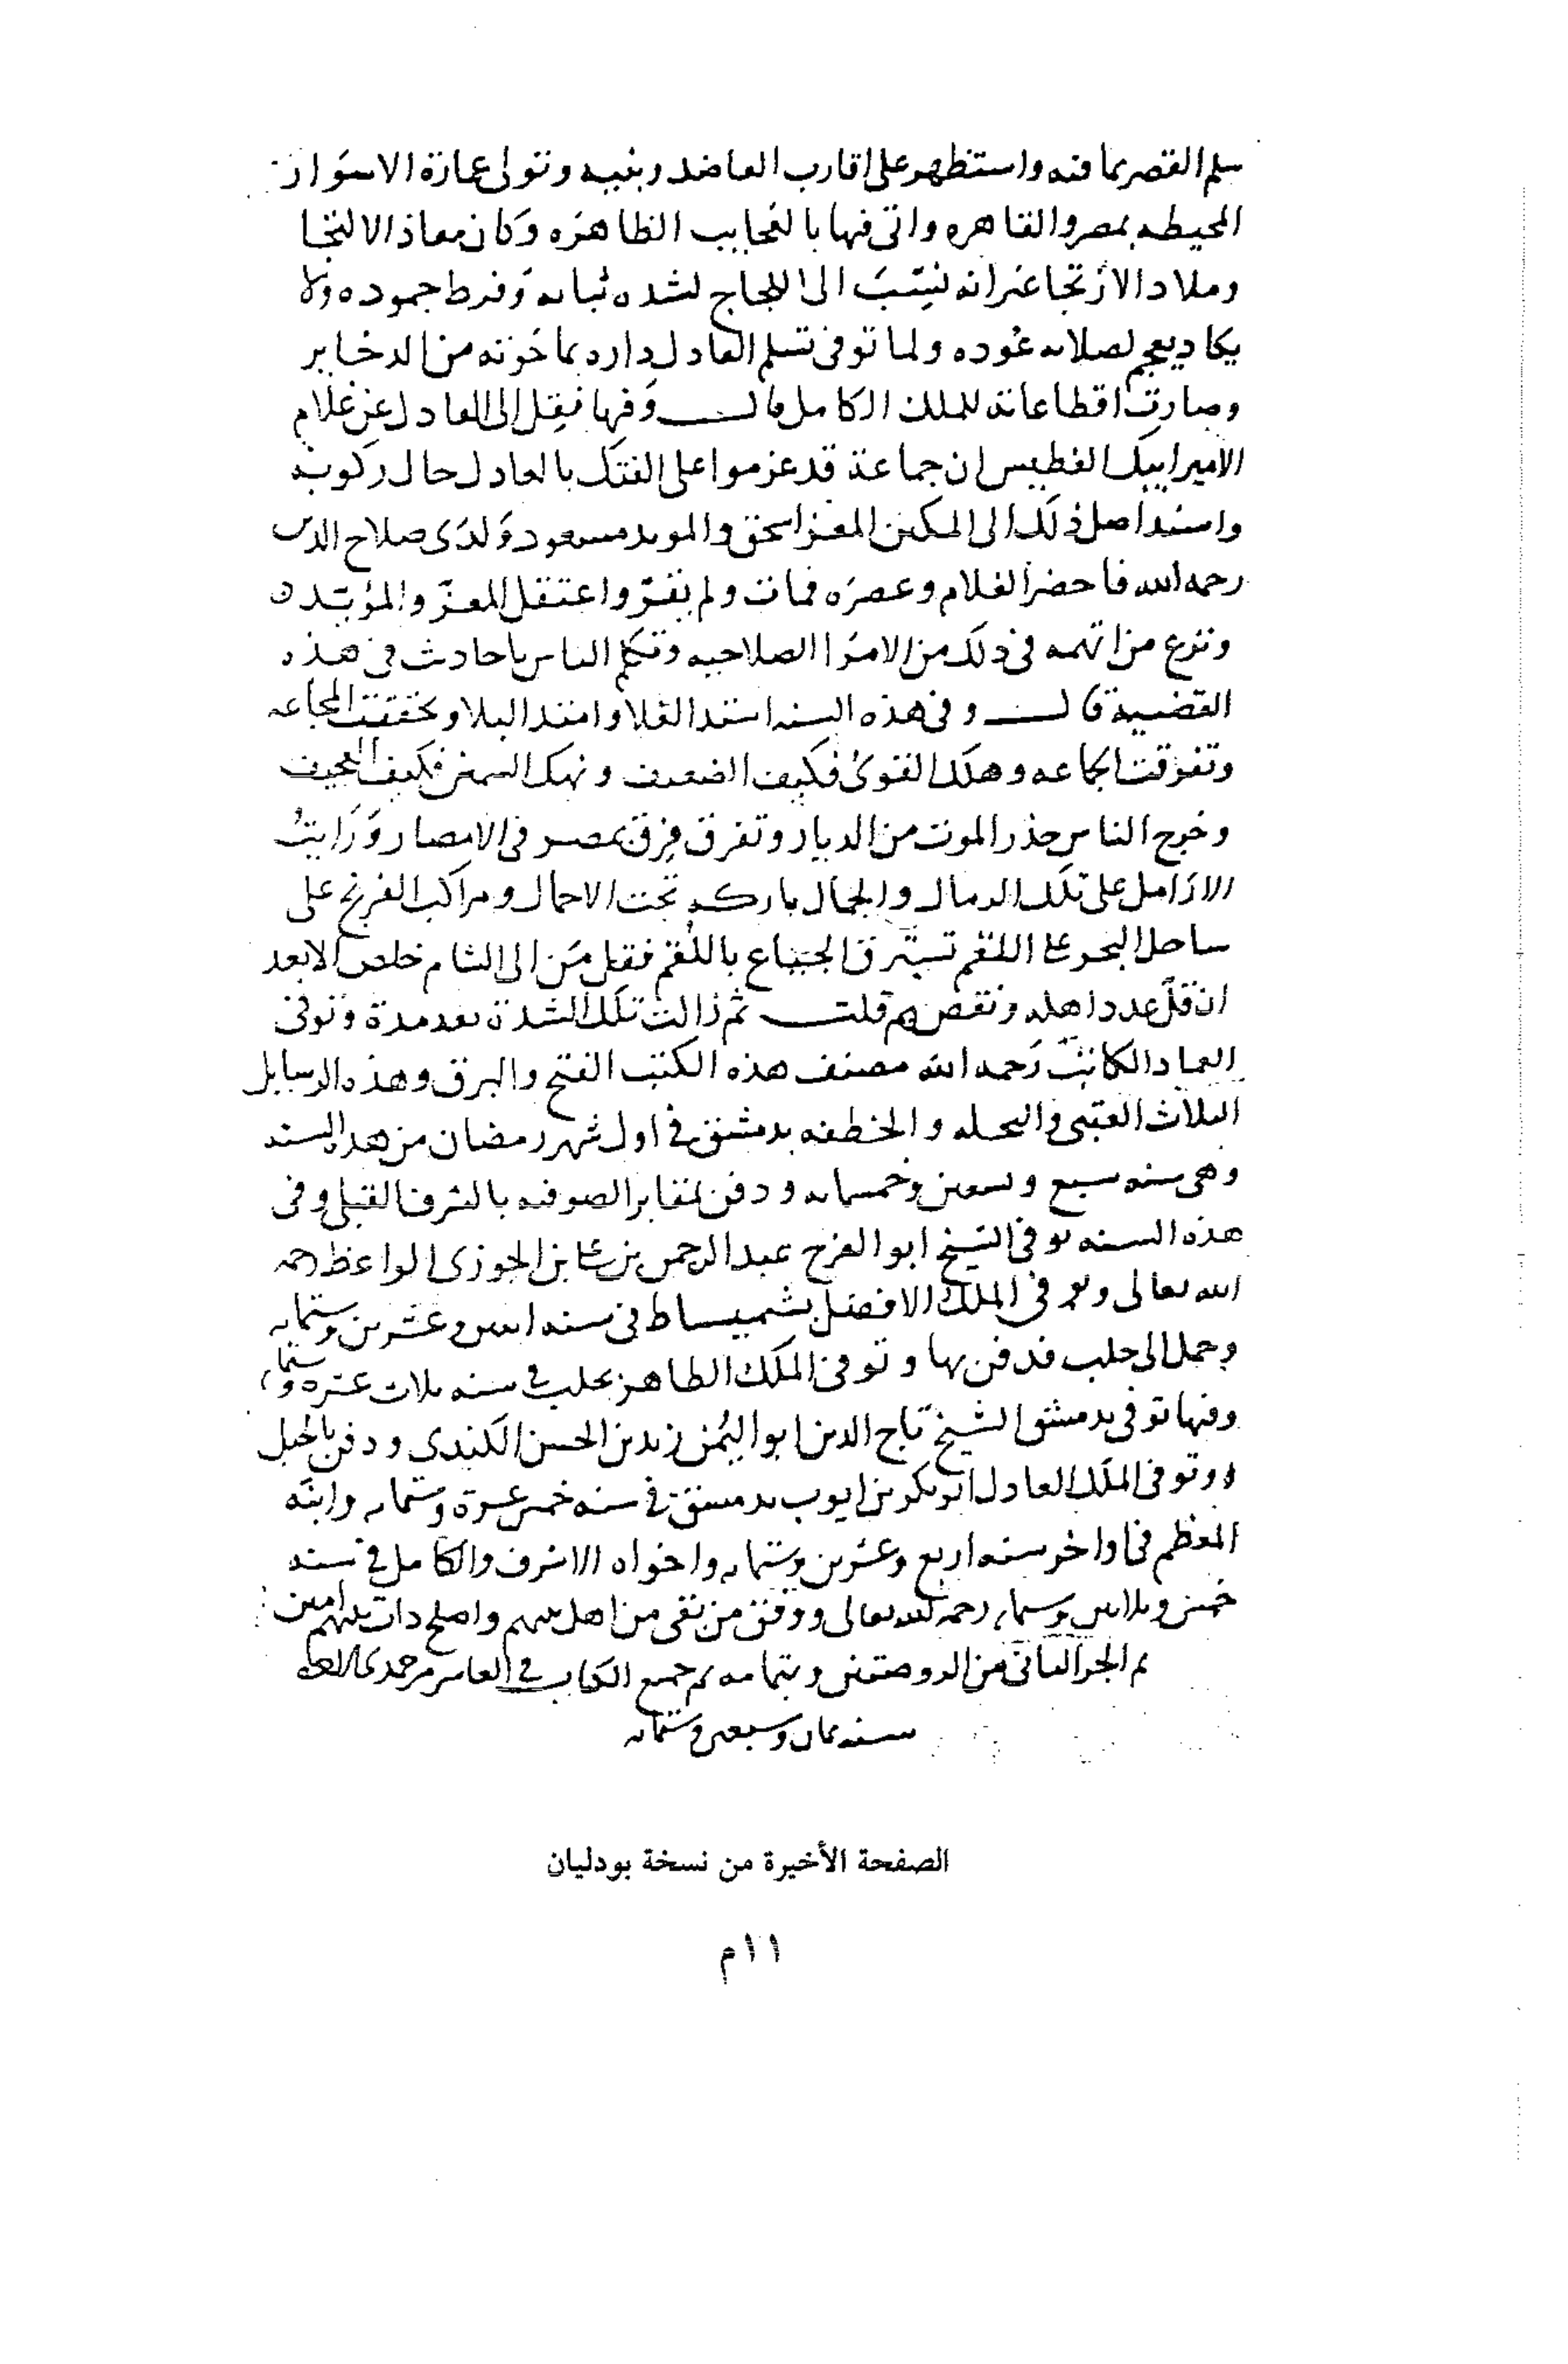 سلم القصر بما فيه واستظهر على اقارب العاضد وبنيه وتولى عمارة الاسوار
المحيطه بمصر والقاهره واتى فيها بالعجايب الظاهره وكان معاذ الالتجا
وملاذ الارتجا غير انه نسب الى اللجاج لشده ثباته وفرط جموده ولا
يكاد يعجم لصلابه عوده ولما توفى تسلم العادل داره بما حوته من الدخاير
وصارت اقطاعاته للملك الكامل قال وفيها نقل الى العادل عن غلام
الامير ايبك الفطيس ان جماعة قد عزموا على الفتك بالعادل حال ركوبه
واسند اصل ذلك الى المكين المعز اسحق والمويد مسعود ولدى صلاح الدين
رحمه الله فاحضر الغلام وعصره فمات ولم يقر واعتقل المعز والمؤيد
ونزع من اتهمه فى ذلك من الامرا الصلاحيه وتكلم الناس باحاديث فى هذه
القضية قال وفى هذه السنه اشتد الغلا وامتد البلا وتحققت المجاعه
وتفرقت الجماعه وهلك القوى فكيف الضعيف ونهك السمين فكيف العجيف
وخرج الناس حذر الموت من الديار وتفرق فرق مصر فى الامصار ورايت
الارامل على تلك الرمال والجمال باركه تحت الاحمال ومراكب الفرنج على
ساحل البحر على اللقم تسترق الجياع باللقم فقل من الى الشام خلص الا بعد
ان قل عدد اهله ونقص قلت ثم زالت تلك الشدة بعد مدة وتوفى
العماد الكاتب رحمه الله مصنف هذه الكتب الفتح والبرق وهذه الرسايل
الثلاث العتبى والنحله والخطفه بدمشق فى اول شهر رمضان من هذه السنه
وهى سنه سبع وتسعين وخمسمايه ودفن بمقابر الصوفيه بالشرف القبلى وفى
هذه السنه توفى الشيخ ابو الفرج عبد الرحمن بن على بن الجوزى الواعظ رحمه
الله تعالى وتوفى الملك الافضل بشميساط فى سنه اثنين وعشرين وستمايه
وحمل الى حلب فدفن بها وتوفى الملك الظاهر بحلب فى سنه ثلاث عشره وستمايه
وفيها توفى بدمشق الشيخ تاج الدين ابو اليمن زيد بن الحسن الكندى ودفن بالجبل
وتوفى الملك العادل ابو بكر بن ايوب بدمشق فى سنه خمس عشرة وستمايه وابنه
المعظم فى اواخر سنه اربع وعشرين وستمايه واخواه الاشرف والكامل فى سنه
خمس وثلاثين وستمايه رحمهم الله تعالى ووفق من بقى من اهل بيتهم واصلح ذات بينهم امين
تم الجز الثانى من الروضتين وبتمامه تم جميع الكتاب فى العاشر من جمدى
سنه ثمان وسبعين وستمايه
الصفحة الأخيرة من نسخة بودليان
١١م